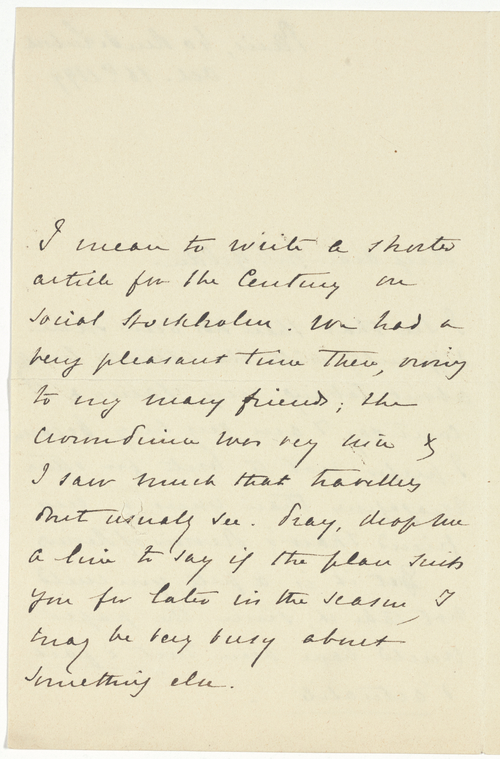 I mean to write a shorter
article for the Century on
social Stockholm. We had a
very pleasant time there, owing
to my many friends; the
was very nice &
I saw much that travellers
don't usually see. Pray, drop me
a line to say if the plan suits
you for later in the season, I
may be very busy about
something else.